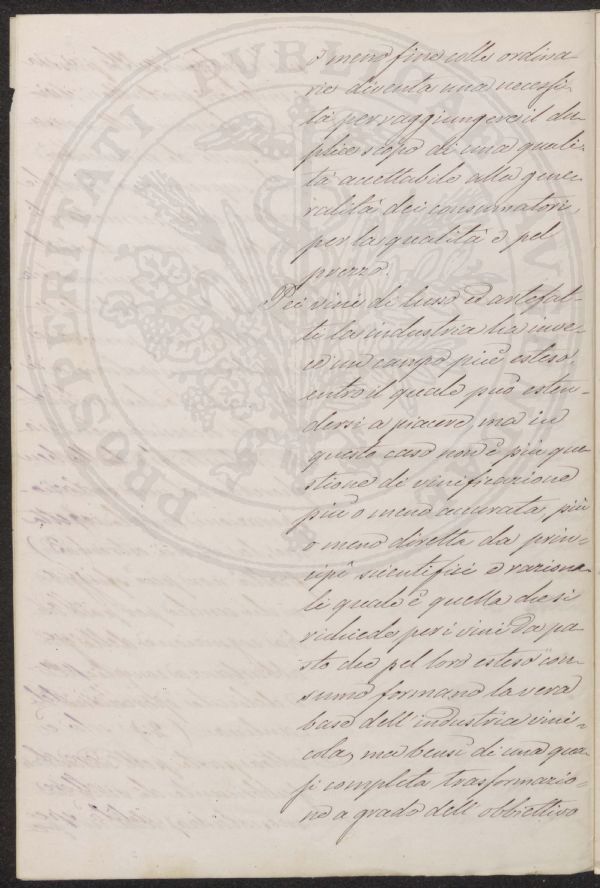 o meno fine colle ordina
rie diventa una necessi
tà per raggiungere il du
plice scopo di una quali
tà accettabile alla gene
ralità dei consumatori,
per la qualità e pel
prezzo.
Pei vini di lusso ed artefat-
ti la industria ha inve-
ce un campo più esteso
entro il quale può esten-
dersi a piacere, ma in
questo caso non è più que
stione di vinificazione
più o meno accurata, più
o meno diretta da prin-
cipî scientifici e raziona
li quale è quella che si
richiede per i vini da pa-
sto che pel loro esteso con-
sumo formano la vera
base dell'industria vini-
cola, ma bensì di una qua
si completa trasformazio-
ne a grado dell'obbiettivo
PROSPERITATI PUBLICAE